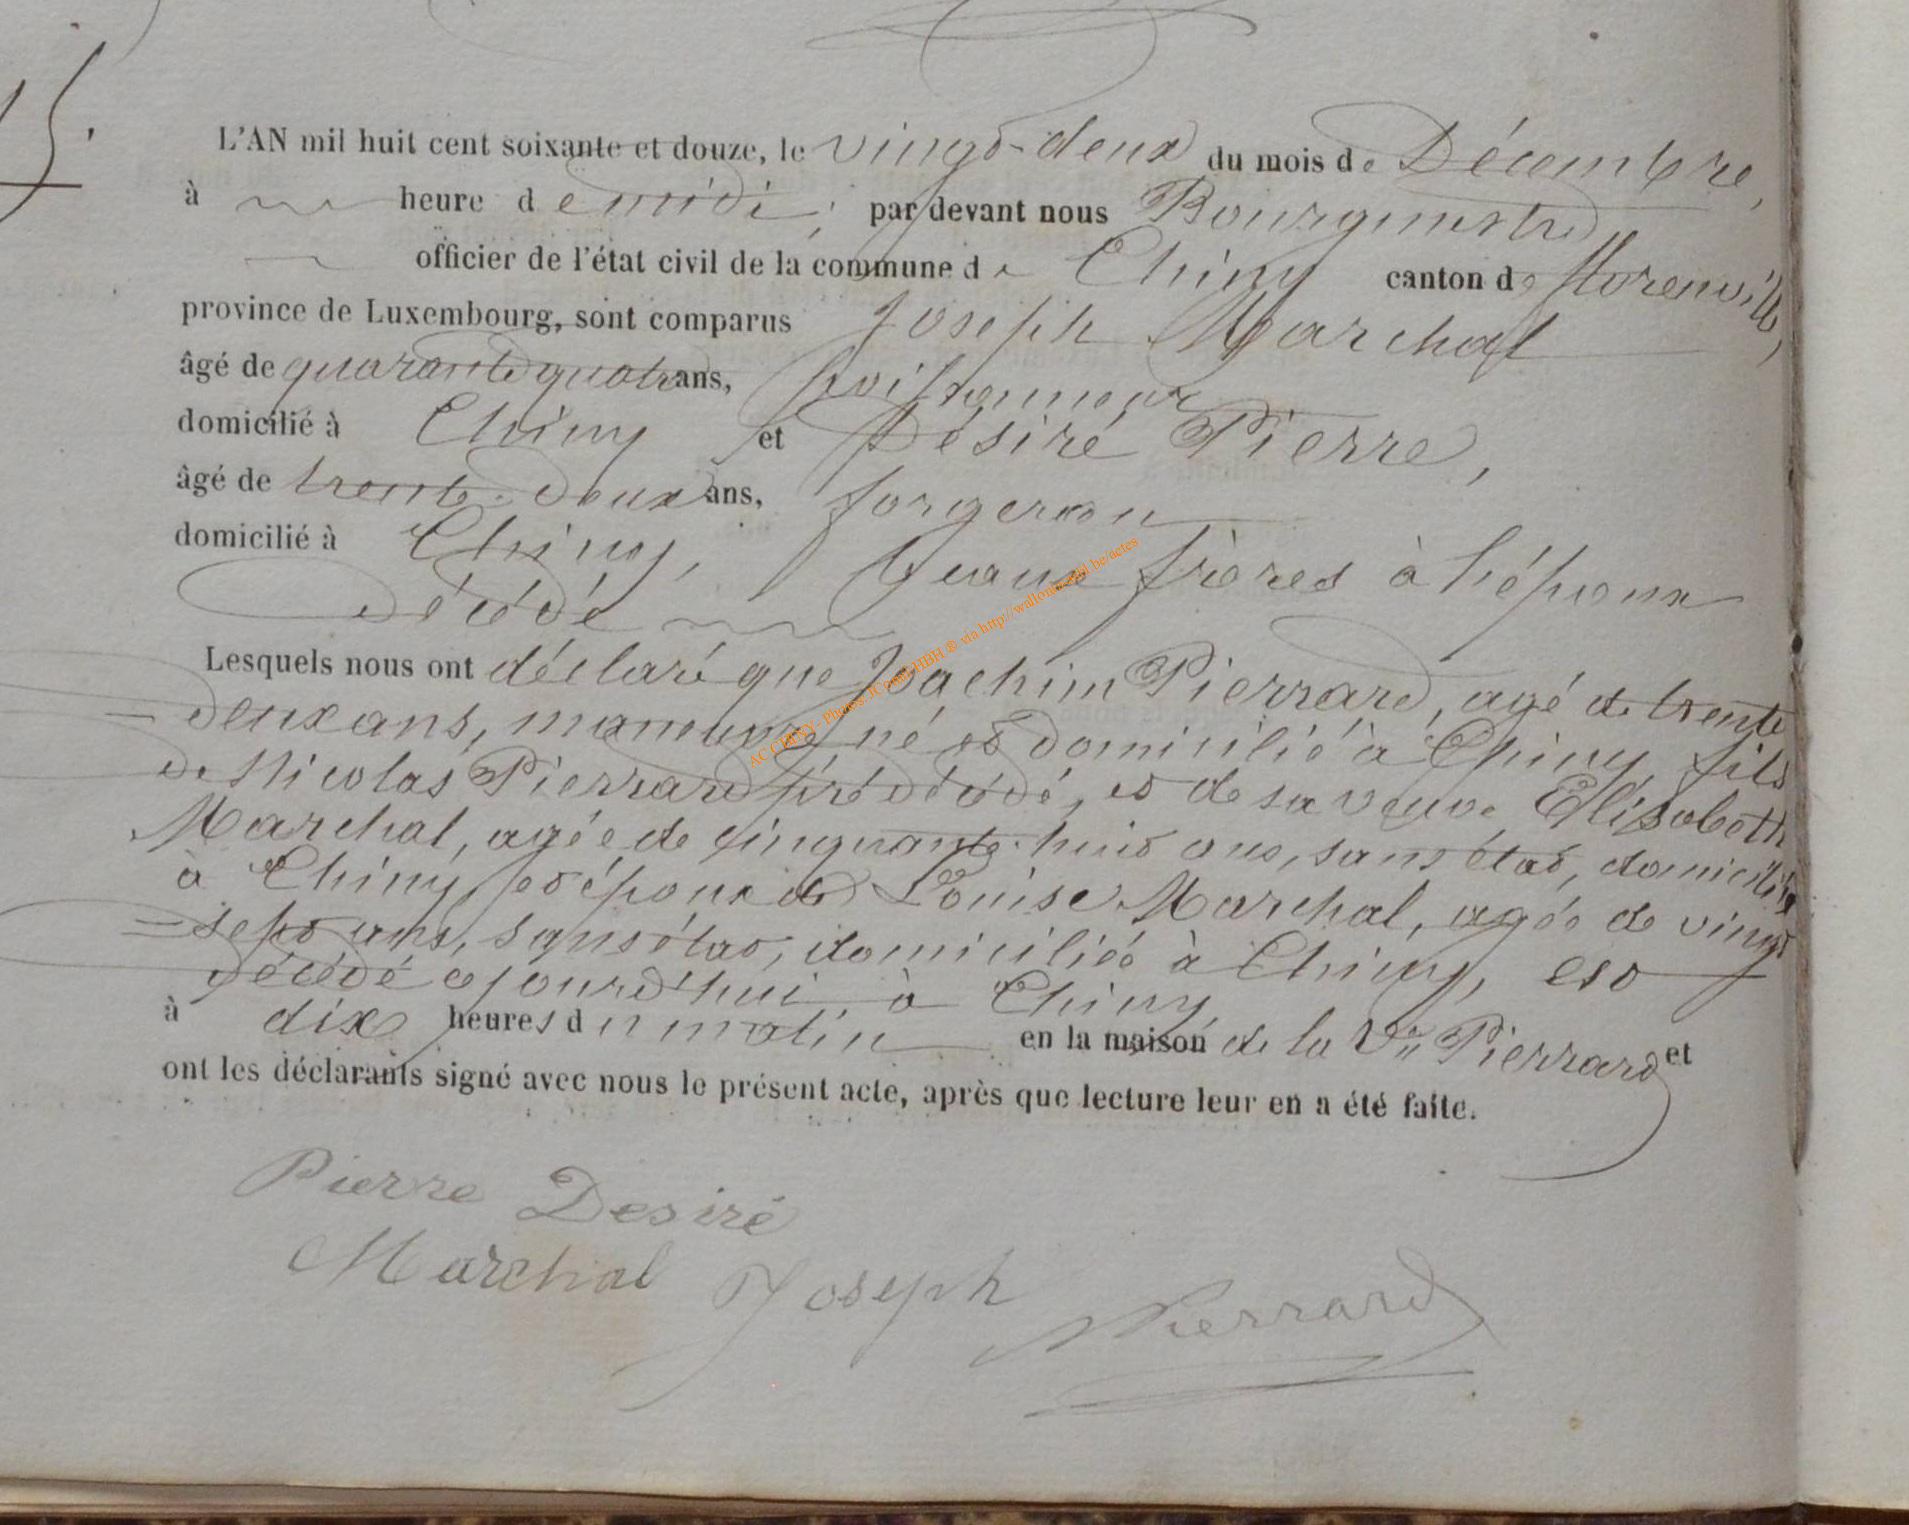 15.
L'AN mil huit cent soixante et douze, le vingt-deux du mois de Décembre,
à heure de midi, par devant nous Bourgmestre,
officier de l'état civil de la commune de Chiny canton de florenville,
province de Luxembourg, sont comparus Joseph Marchal
âgé de quarante quatre ans,
domicilié à Chiny et Désiré Pierre,
âgé de trente-deux ans, forgeron
domicilié à Chiny, beaux frères à l'époux
décédé
Lesquels nous ont déclaré que Joachim Pierrard, agé de trente
=deux ans, manœuvre né et domicilié à Chiny, fils
de Nicolas Pierrard prédécédé, et de sa veuve Elisabeth
Marchal, agée de cinquante-huit ans, sans état, domiciliée
à Chiny, et époux de Louise Marchal, agée de vingt
=sept ans, sans état, domiciliée à Chiny, est
décédé cejourd'hui à Chiny,
à dix heures du matin en la maison de la Vve Pierrard et
ont les déclarants signé avec nous le présent acte, après que lecture leur en a été faite.
Pierre Desiré
Marchal Joseph Pierrard
AC CHINY - Photos JComit HBH ® via http://wallonica.be/actes